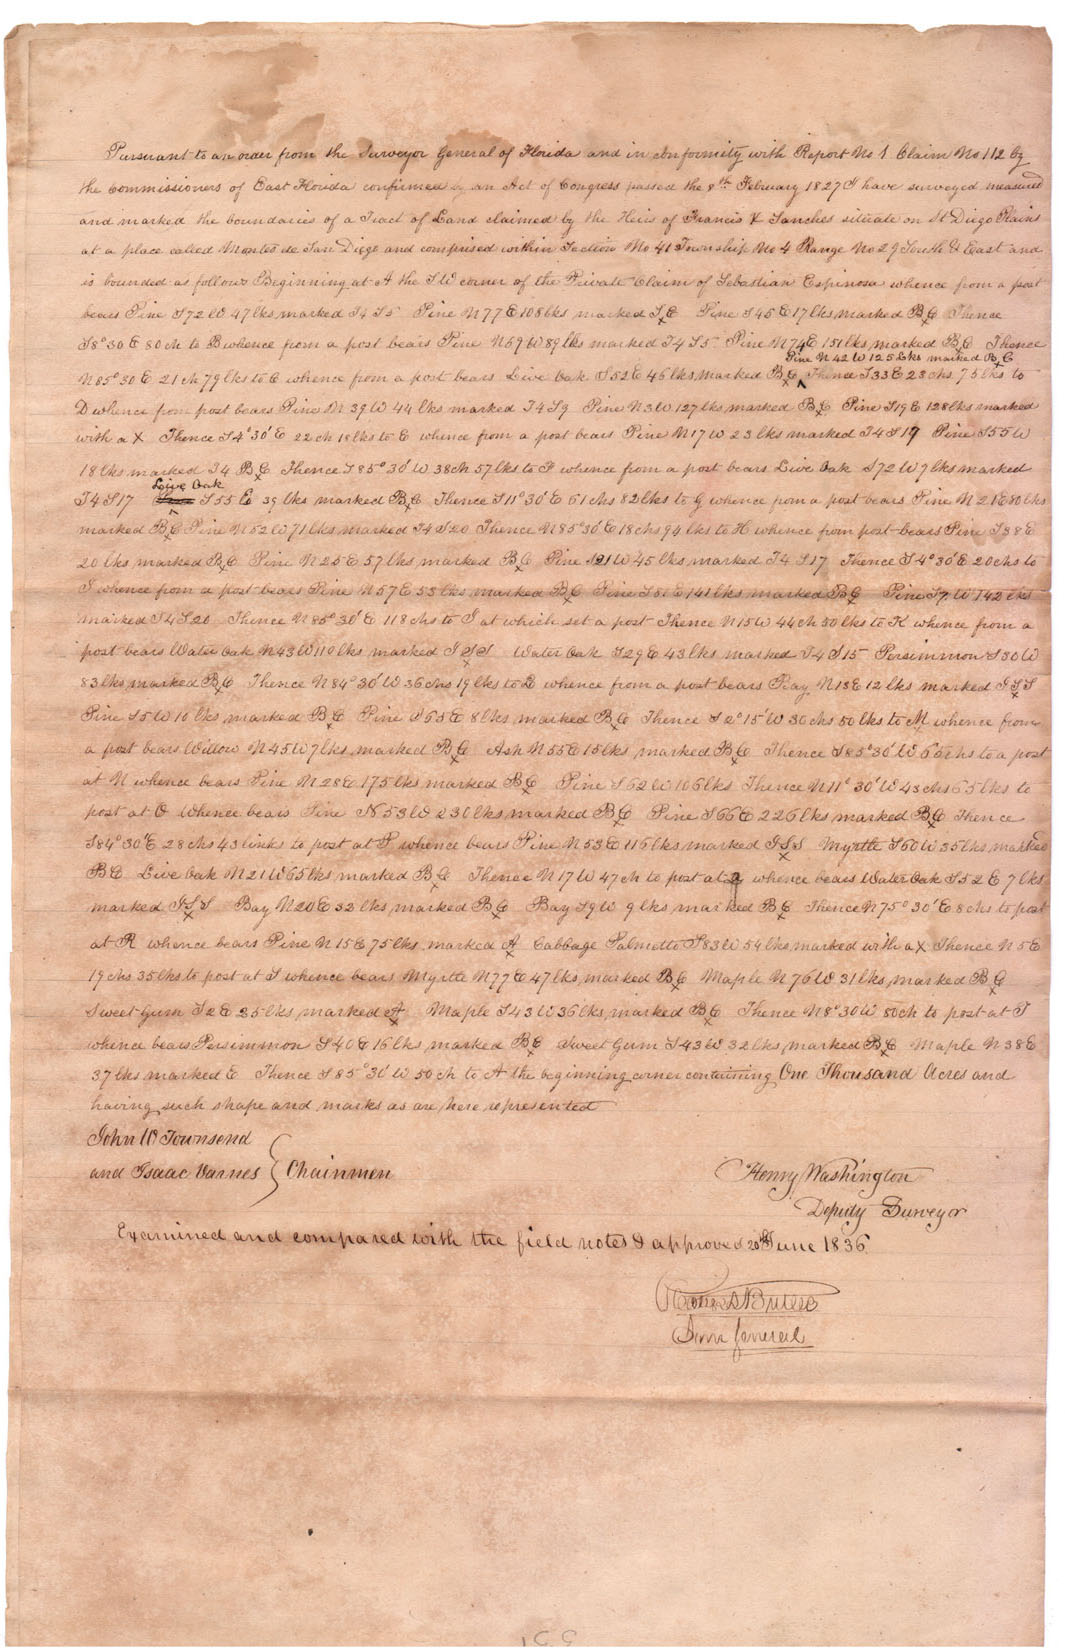 Pursuant to an order from the Surveyor General of Florida and in Conformity with Report No 1 Claim No 112 by
the Commissioners of East Florida confirmed by an Act of Congress passed the 8th February 1827 I have surveyed measured
and marked the boundaries of a Tract of Land claimed by the Heirs of Francis X Sanches situate on St Diego Plains
at a place called Montes de San Diego and comprised within Section No 41 Township No 4 Range No 29 South & East and
is bounded as follows Beginning at A the SW corner of the Private Claim of Sebastian Espinosa whence from a post
bears Pine S72W 47lks marked T4 S5 Pine N77E 108lks marked Pine S45E 17lks marked BC Thence
S8°30E 80ch to B whence from a post bears Pine N59W 89lks marked T4 S5 Pine N74E 151lks marked BC Thence
Pine N42W 125Lks marked BC
N85°30E 21ch 79lks to C whence from a post bears Live Oak S52E 46lks marked BC Thence S33E 23chs 75lks to
D whence from post bears Pine N39W 44lks marked T4 S9 Pine N3W 127lks marked BC Pine S19E 128lks marked
with a X Thence S4°30'E 22ch 18lks to E whence from a post bears Pine N17W 23lks marked T4 S17 Pine S55W
18lks marked T4 BC Thence S85°30'W 38ch 57lks to F whence from a post bears Live Oak S72W 7lks marked
Live Oak
T4 S17 S55E 39lks marked BC Thence S11°30'E 61chs 82lks to G whence from a post bears Pine N21E 80lks
marked BC Pine N52W 71lks marked T4 S20 Thence N85°30'E 18chs 94lks to H whence from post bears Pine S38E
20lks marked BC Pine N25E 57lks marked BC Pine 21W 45lks marked T4 S17 Thence S4°30'E 20chs to
I whence from a post bears Pine N57E 53lks marked BC Pine S81E 141lks marked BC Pine S7W 142lks
marked T4 S20 Thence N85°30'E 118chs to J at which set a post Thence N15W 44ch 50lks to K whence from a
post bears Water Oak N43W 110lks marked FSS Water Oak S29E 43lks marked T4 S15 Persimmon S30W
83lks marked BC Thence N84°30'W 36chs 19lks to L whence from a post bears Bay N13E 12lks marked FSS
Pine S5W 10lks marked BC Pine S53E 8lks marked BC Thence S2°15'W 30chs 50lks to M whence from
a post bears Willow N45W 7lks marked BC Ash N55E 15lks marked BC Thence S85°30'W 65chs to a post
at N whence bears Pine N28E 175lks marked BC Pine S62W 106lks Thence N11°30'W 43chs 65lks to
post at O whence bears Pine N53W 230lks marked BC Pine S66E 226lks marked BC Thence
S84°30'E 28chs 43links to post at P whence bears Pine N53E 116lks marked FSS Myrtle S60W 35lks marked
BC Live Oak N21W 65lks marked BC Thence N17W 47ch to post at Q whence bears Water Oak S52E 7lks
marked FSS Bay N20E 32lks marked BC Bay S9W 9lks marked BC Thence N75°30'E 8chs to post
at R whence bears Pine N15E 75lks marked A Cabbage Palmetto S83W 54lks marked with a X Thence N5E
19chs 35lks to post at S whence bears Myrtle N77E 47lks marked BC Maple N76W 31lks marked BC
Sweet Gum S2E 25lks marked A Maple S43W 36lks marked BC Thence N8°30W 80ch to post at T
whence bears Persimmon S40E 16lks marked BC Sweet Gum S43W 32lks marked BC Maple N38E
37lks marked E Thence S85°30'W 50ch to A the beginning corner containing One Thousand Acres and
having such shape and marks as are here represented
John W Townsend
and Isaac Varnes } Chainmen
Henry Washington
Deputy Surveyor
Examined and compared with the field notes & approved 20th June 1836
Robert Butler
Surv General